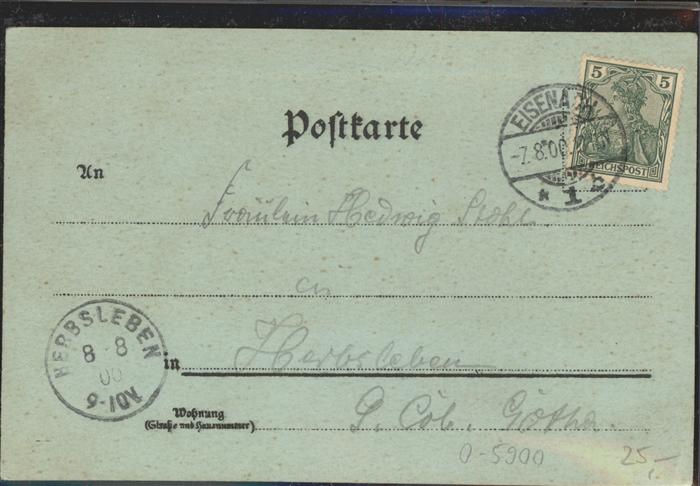 5 5
REICHSPOST
EISENACH
-7.8.00
* 1 c
Postkarte
An
Fräulein Hedwig
in
Herbsleben
HERBSLEBEN
8 8
00
9-10V.
in
Wohnung
(Straße und Hausnummer)
S. Cob. Gotha.
0-5900
25,-